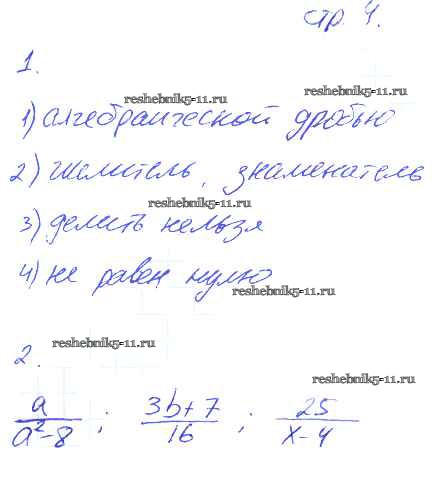 стр. 4.
1.
reshebnik5-11.ru
1) алгебраической дробью
2) числитель, знаменатель
reshebnik5-11.ru
3) делить нельзя
4) не равен нулю
reshebnik5-11.ru
2.
reshebnik5-11.ru
reshebnik5-11.ru
a/(a²-8) ; (3b+7)/16 ; 25/(x-4)